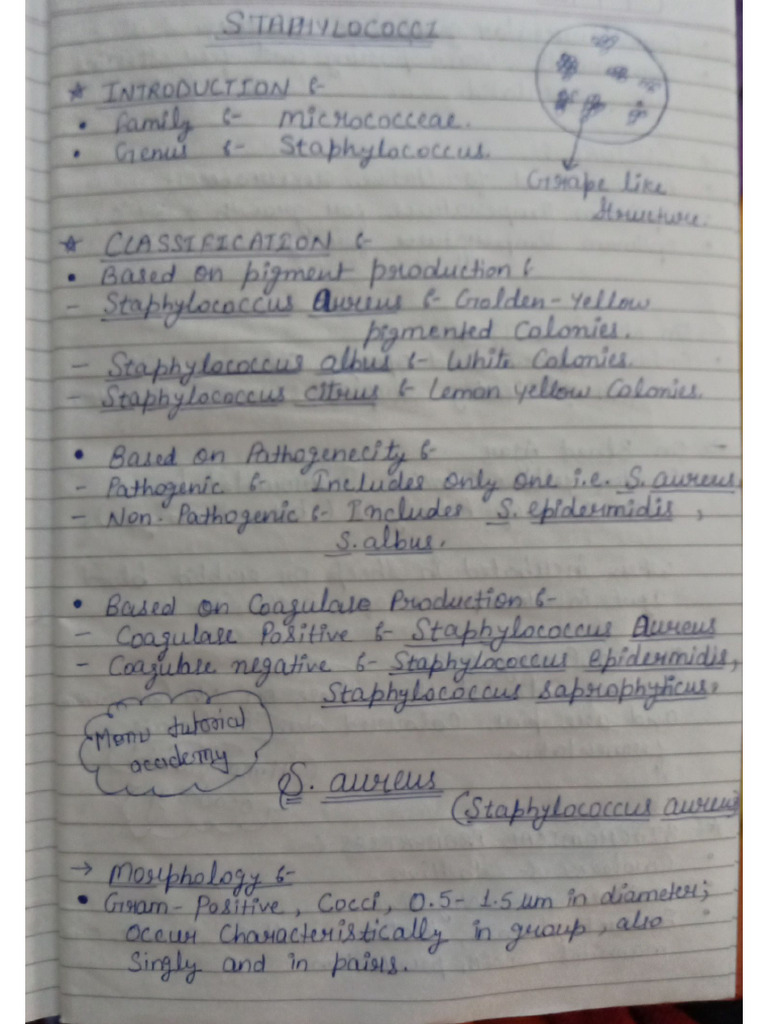 STAPHYLOCOCCI
★ INTRODUCTION :-
• Family :- Micrococceae.
• Genus :- Staphylococcus.
Grape like
structure.
★ CLASSIFICATION :-
• Based on pigment production :
- Staphylococcus aureus :- Golden-Yellow
pigmented Colonies.
- Staphylococcus albus :- White Colonies.
- Staphylococcus citrius :- Lemon yellow Colonies.
• Based on Pathogenecity :-
- Pathogenic :- Includes only one i.e. S. aureus
- Non-Pathogenic :- Includes S. epidermidis,
S. albus.
• Based on Coagulase Production :-
- Coagulase Positive :- Staphylococcus Aureus
- Coagulase negative :- Staphylococcus epidermidis,
Staphylococcus saprophyticus.
Menu tutorial
academy
S. aureus
(Staphylococcus aureus)
→ Morphology :-
• Gram-Positive, Cocci, 0.5-1.5 um in diameter;
occur Characteristically in group, also
Singly and in pairs.